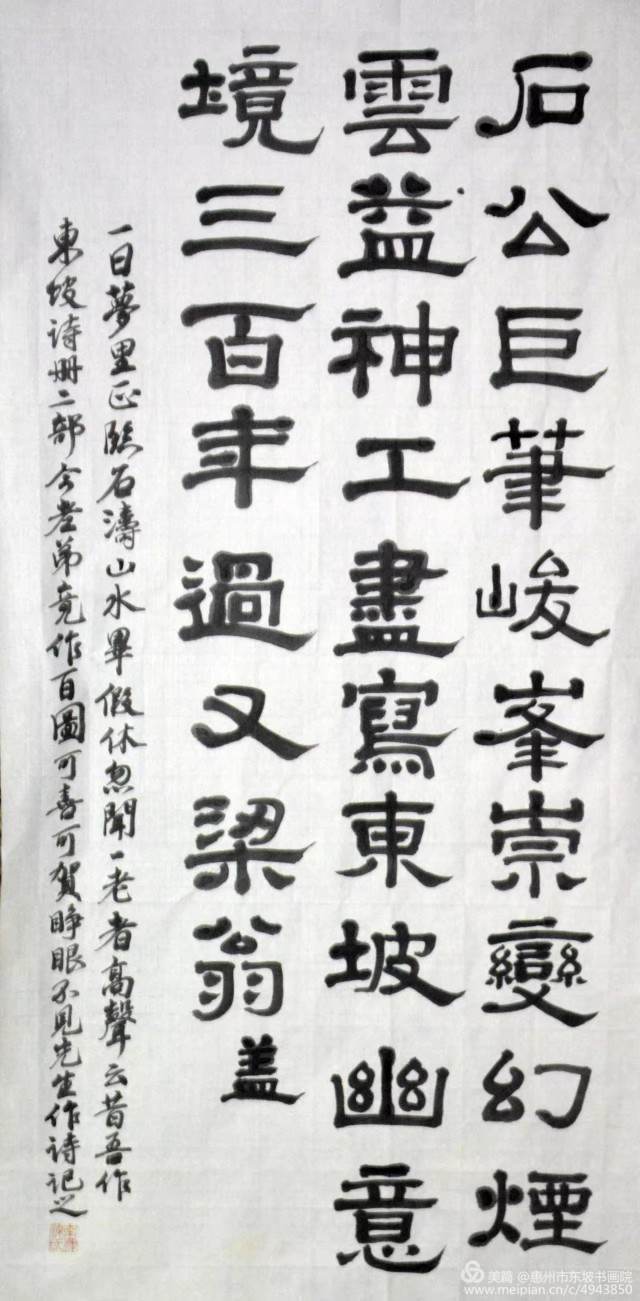 石公巨筆峻峯崇變幻煙
雲益神工盡寫東坡幽意
境三百年過又梁翁
蓋
一日夢里正臨石濤山水畢假休忽聞一老者高聲云昔吾作
東坡诗册二部今老弟竟作百圖可喜可賀睁眼不見先生作诗记之
美篇 @惠州市东坡书画院
www.meipian.cn/c/4943850